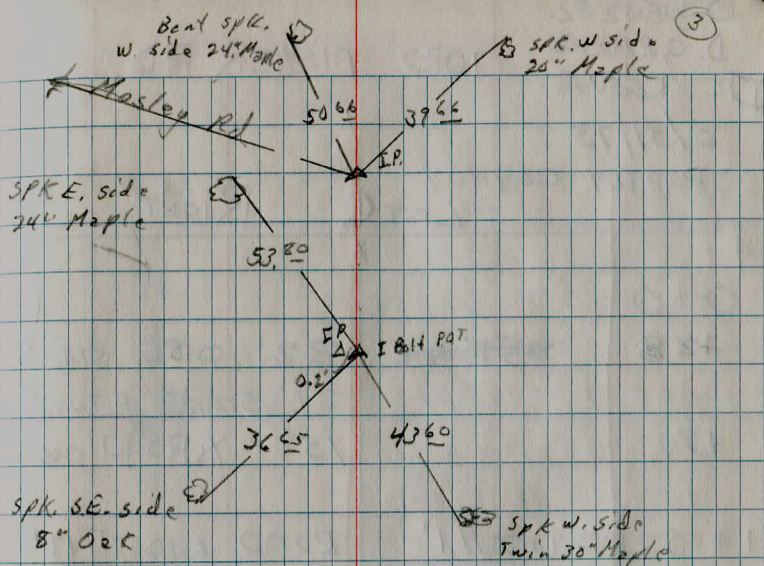 3
Bent spk.
w. side 24" Maple
spk. w side
20" Maple
Mosley Rd
50 66
39 66
I.P.
SPK E. side
24" Maple
53.80
I.P.
I Bolt POT
0.2'
36 65
43 60
spk. S.E. side
8" Oak
spk w. side
Twin 30" Maple